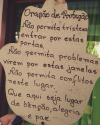 Oração de Proteção
Não permita tristeza
entrar por estas
portas.
Não permita problemas
virem por estas janelas
Não permita conflitos
neste lugar.
Que aqui seja lugar
de bênção, alegria
e paz.